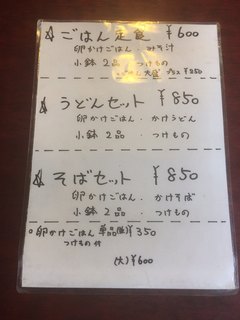 ☆ ごはん定食 ¥600
卵かけごはん・みそ汁
小鉢2品・つけもの
大盛 プラス ¥250
☆ うどんセット ¥850
卵かけごはん・かけうどん
小鉢2品・つけもの
☆ そばセット ¥850
卵かけごはん・かけそば
小鉢2品・つけもの
○ 卵かけごはん 単品 ¥350
つけもの付
(大)¥600